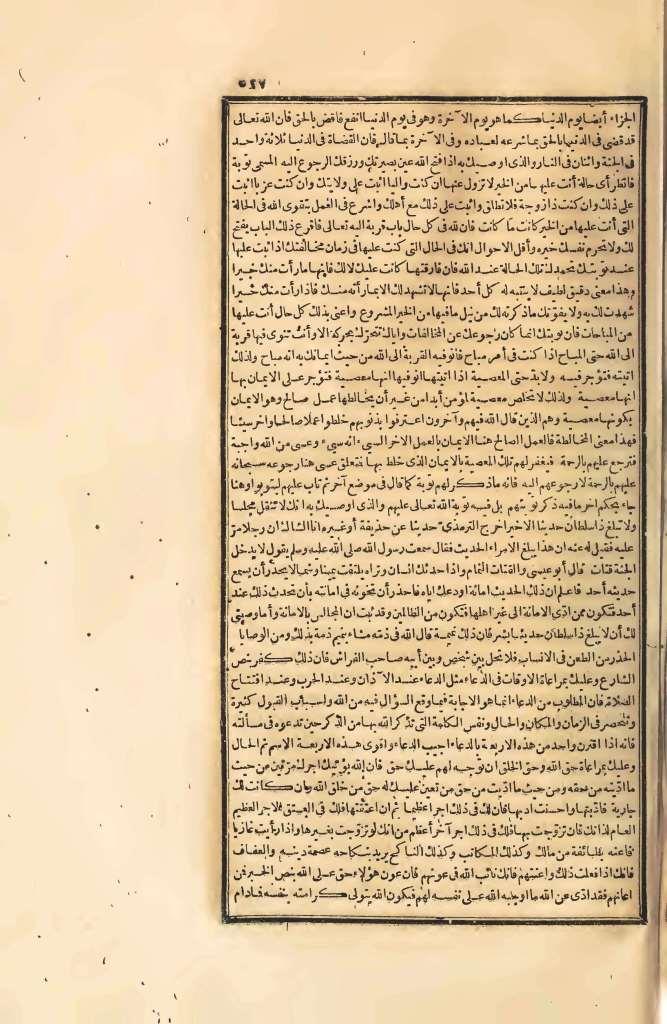 ٥٤٧
الجزاء أيضا يوم الدنيا كما هو يوم الآخرة وهو فى يوم الدنيا انفع فاقض بالحق فان الله تعالى
قد قضى فى الدنيا بالحق بما شرعه لعباده وفى الآخرة بما قال فان القضاة فى الدنيا ثلاثة واحد
فى الجنة واثنان فى النار والذى أوصيك به اذا فتح الله عين بصيرتك ورزقك الرجوع اليه المسمى توبة
فانظر أى حالة أنت عليها من الخير لا تزول عنها ان كنت واليا اثبت على ولايتك وان كنت عزبا اثبت
على ذلك وان كنت ذا زوجة فلا تطلق واثبت على ذلك مع أهلك واشرع فى العمل بتقوى الله فى الحالة
التى أنت عليها من الخير كانت ما كانت فان لله فى كل حال باب قربة اليه تعالى فاقرع ذلك الباب يفتح
لك ولا تحرم نفسك خيره وأقل الاحوال انك فى الحال التى كنت عليها فى زمان مخالفتك اذا ثبت عليها
عند توبتك تحمدك تلك الحالة عند الله فان فارقتها كانت عليك لا لك فانها ما رأت منك خيرا
وهذا معنى دقيق لطيف لا ينتبه له كل أحد فانها لا تشهد لك الا بما رأته منك فاذا رأت منك خيرا
شهدت لك به ولا يفوتك ما ذكرته لك من نيل ما فيها من الخير المشروع واعنى بذلك كل حال أنت عليها
من المباحات فان توبتك انما كان رجوعك عن المخالفات واياك تتحرك بحركة الا وأنت تنوى فيها قربة
الى الله حتى المباح اذا كنت فى أمر مباح فانو فيه القربة الى الله من حيث ايمانك به انه مباح ولذلك
اتيته فتؤجر فيه ولا بد حتى المعصية اذا اتيتها انو فيها انها معصية فتؤجر على الايمان بها
انها معصية ولذلك لا تخلص معصية لمؤمن أبدا من غير أن يخالطها عمل صالح وهو الايمان
بكونها معصية وهم الذين قال الله فيهم وآخرون اعترفوا بذنوبهم خلطوا عملا صالحا وآخر سيئا
فهذا معنى المخالطة فالعمل الصالح هنا الايمان بالعمل الآخر السيء انه سيء وعسى من الله واجبة
فترجع عليهم بالرحمة فيغفر لهم تلك المعصية بالايمان الذى خلط بها فتعلق عسى هنا رجوعه سبحانه
عليهم بالرحمة لا رجوعهم اليه فانه ما ذكر لهم توبة كما قال فى موضع آخر ثم تاب عليهم ليتوبوا وهنا
جاء بحكم آخر ما فيه ذكر توبتهم بل فيه توبة الله تعالى عليهم والذى أوصيك به انك لا تنقل مجلسا
ولا تبلغ ذا سلطان حديثا الا خيرا خرج الترمذى حديثا عن حذيفة أو غيره انا الشاك ان رجلا مر
عليه فقيل له عنه ان هذا يبلغ الامراء الحديث فقال سمعت رسول الله صلى الله عليه وسلم يقول لا يدخل
الجنة قتات قال أبو عيسى والقتات النمام واذا حدثك انسان وتراه يلتفت يمينا وشمالا يحذر أن يسمع
حديثه أحد فاعلم ان ذلك الحديث امانة اودعك اياه فاحذر أن تخونه فى امانته بأن تحدث ذلك عند
أحد فتكون ممن أدى الامانة الى غير أهلها فتكون من الظالمين وقد ثبت ان المجالس بالامانة وأما وصيتى
لك أن لا يبلغ ذا سلطان حديثا بشر فان ذلك نميمة قال الله فى ذمه مشاء بنميم ذمه بذلك ومن الوصايا
الحذر من الطعن فى الانساب فلا تحل بين شخص وبين أبيه صاحب الفراش فان ذلك كفر بنص
الشارع وعليك بمراعاة الاوقات فى الدعاء مثل الدعاء عند الآذان وعند الحرب وعند افتتاح
الصلاة فان المطلوب من الدعاء انما هو الاجابة فيما وقع السؤال فيه من الله واسباب القبول كثيرة
وتنحصر فى الزمان والمكان والحال ونفس الكلمة التى تذكر الله بها من الذكر حين تدعوه فى مسألته
فانه اذا اقترن واحد من هذه الاربعة بالدعاء اجيب الدعاء واقوى هذه الاربعة الاسم ثم الحال
وعليك بمراعاة حق الله وحق الخلق ان توجه لهم عليك حق فان الله يؤتيك اجرك مرتين من حيث
ما اديته من حقه ومن حيث ما اديت من حق من تعين عليك له حق من خلق الله وان كانت لك
جارية فأدبتها واحسنت ادبها فان لك فى ذلك اجرا عظيما ثم ان اعتقتها فلك فى العتق الاجر العظيم
العام لذاتك فان تزوجت بها فلك فى ذلك اجر آخر أعظم من انك لو تزوجت بغيرها واذا رأيت غازيا
فأعنه بطائفة من مالك وكذلك المكاتب وكذلك الناكح يريد بنكاحه عصمة دينه والعفاف
فانك اذا فعلت ذلك واعنتهم فانك نائب الله فى عونهم فان عون هؤلاء حق على الله بنص الخبر فمن
اعانهم فقد ادى عن الله ما اوجبه الله على نفسه لهم فيكون الله يتولى كرامته بنفسه فما دام